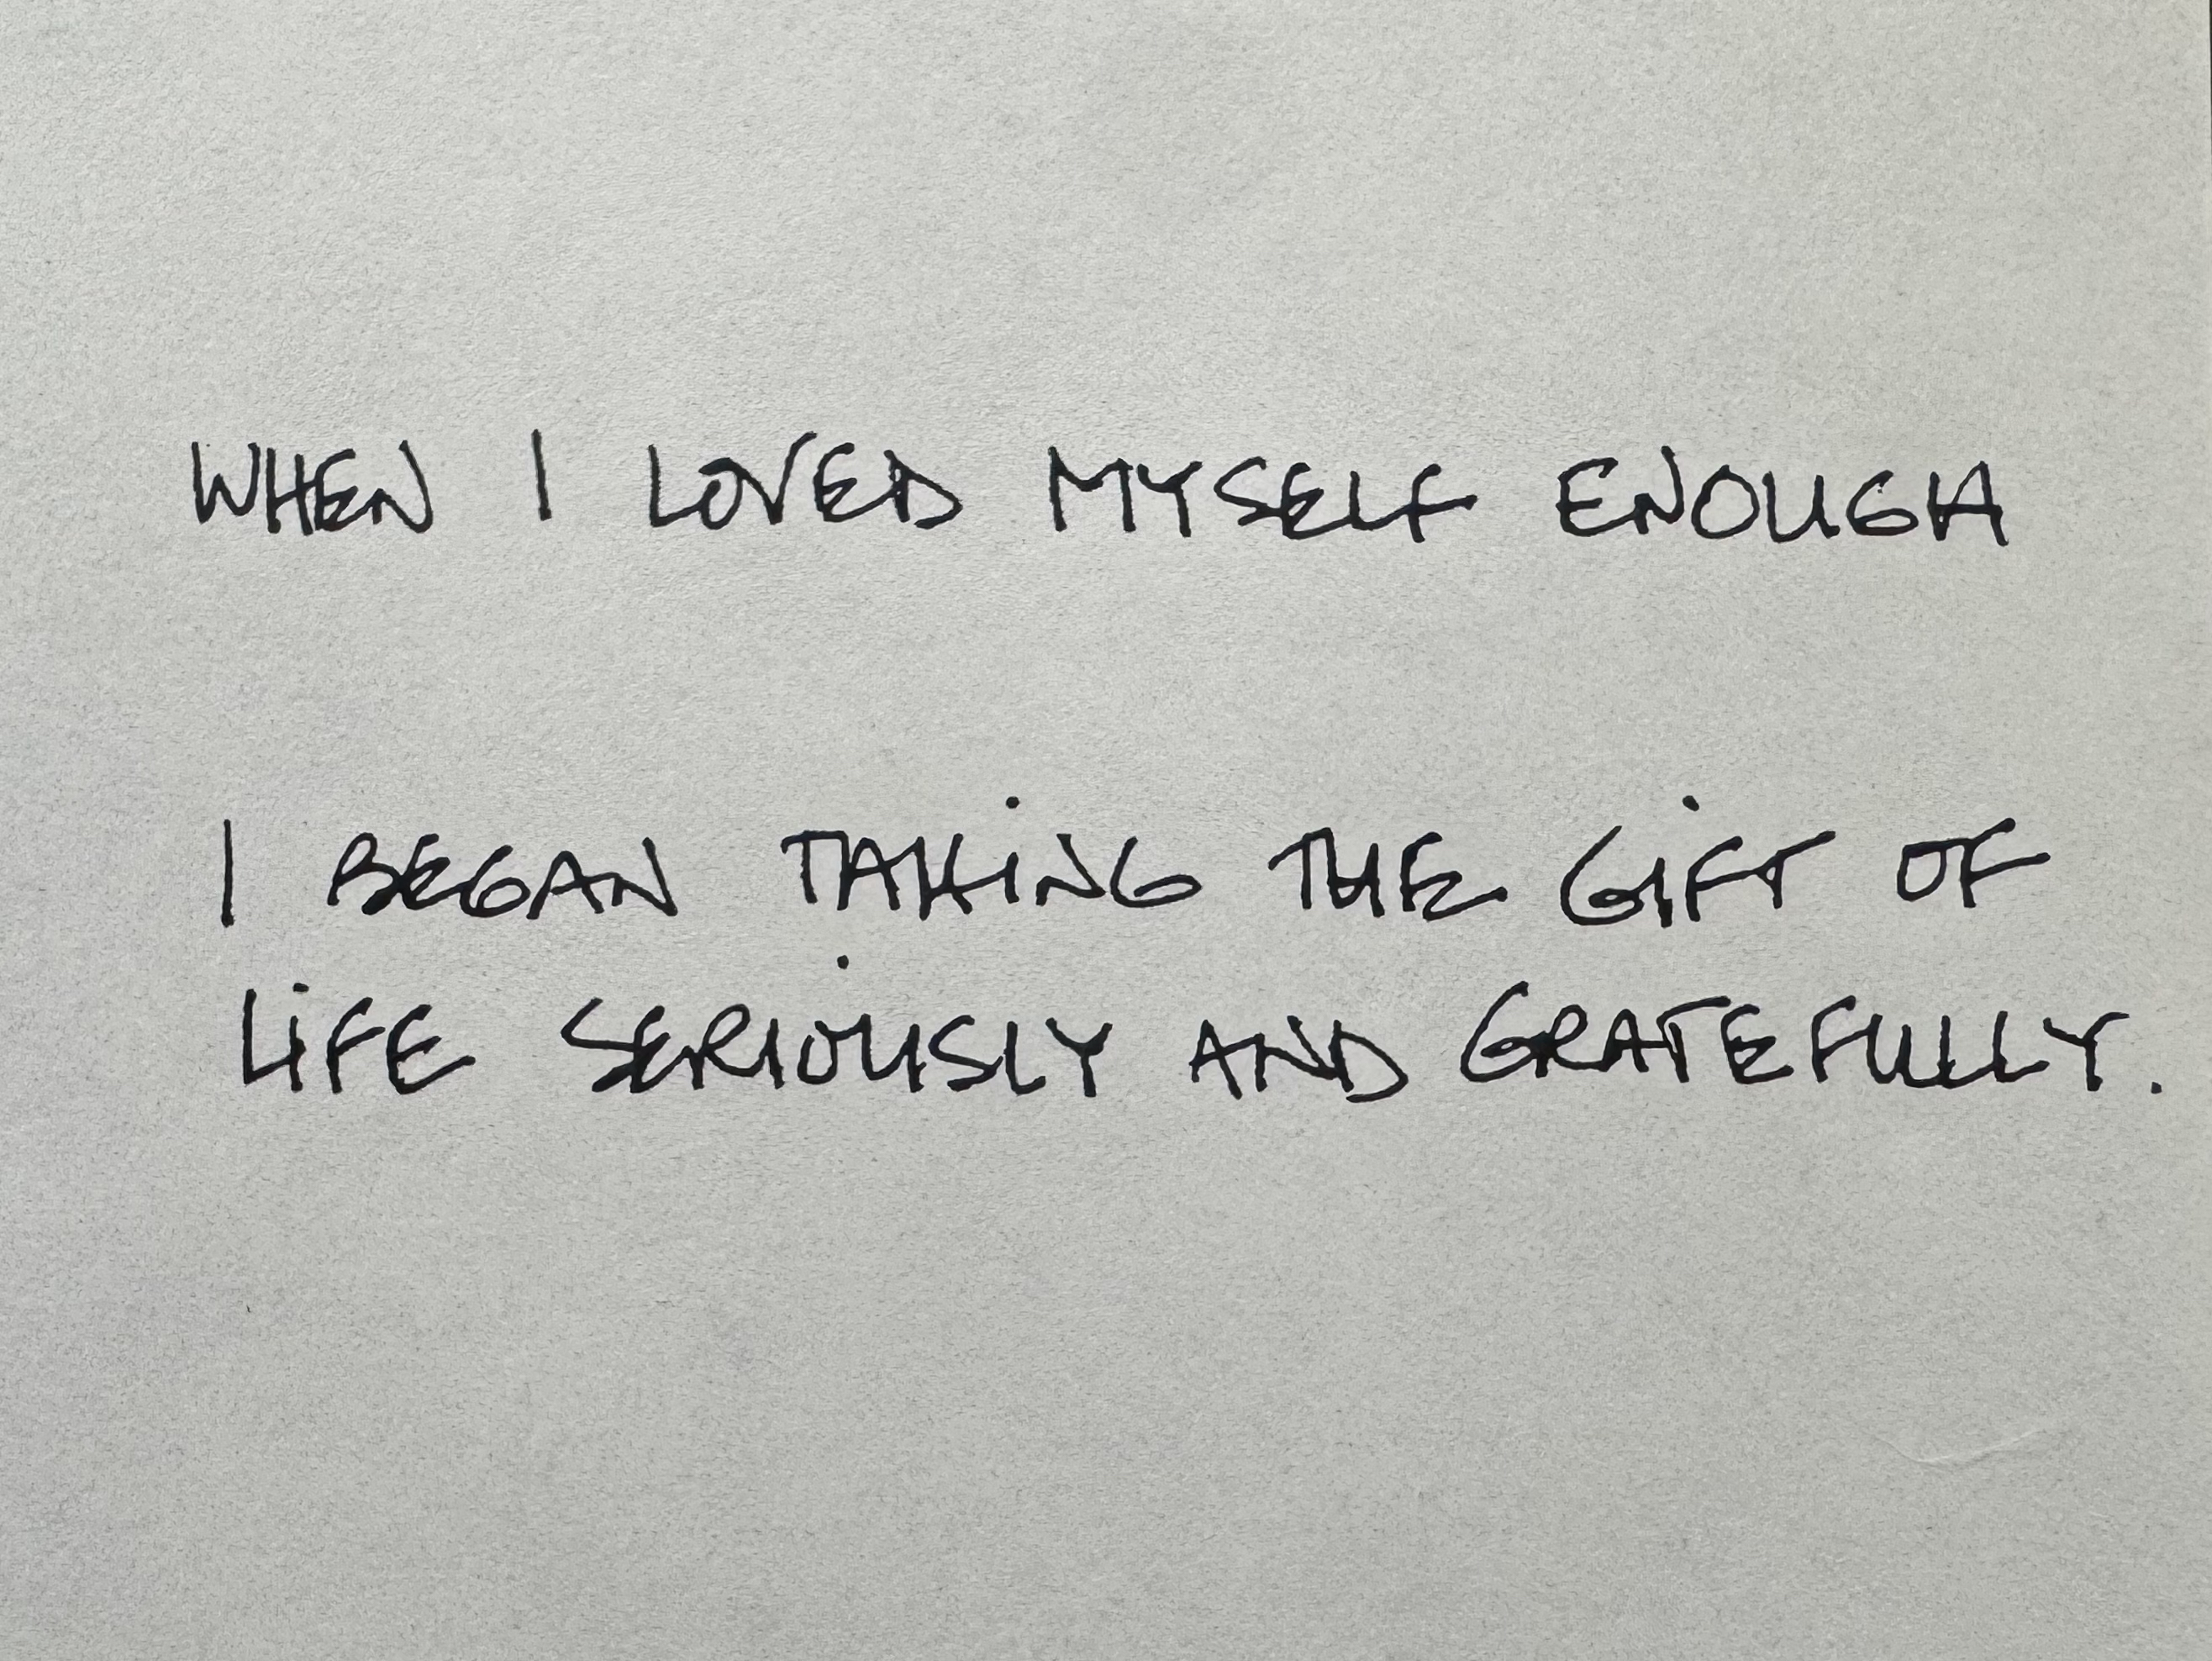 WHEN I LOVED MYSELF ENOUGH
I BEGAN TAKiNG THE GiFT OF
LiFE SERIOUSLY AND GRATEFULLY.